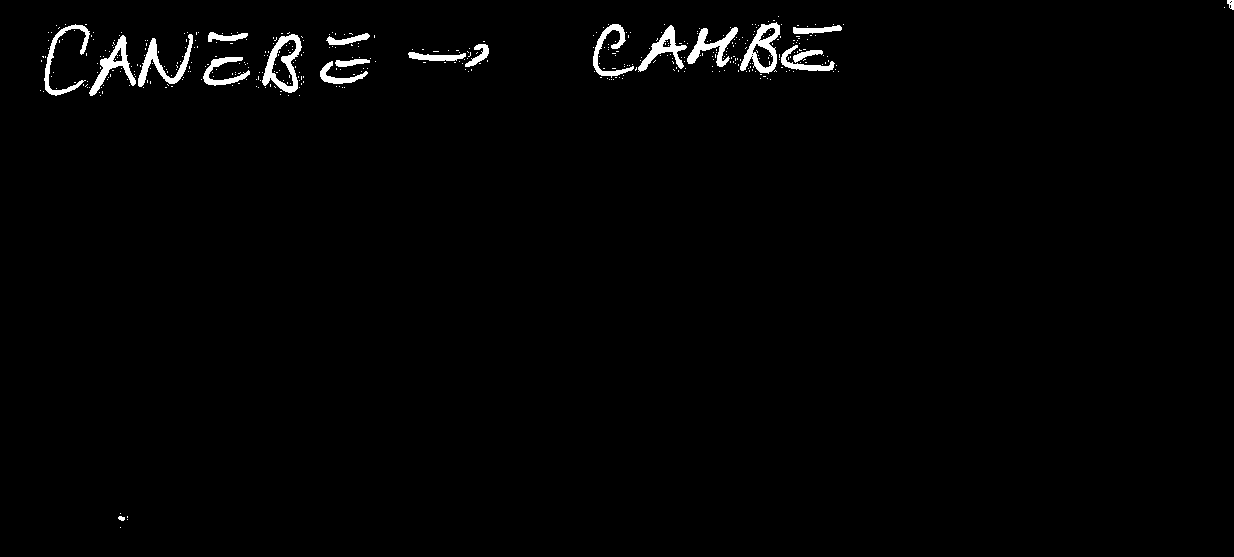 CANEBE → CAMBE